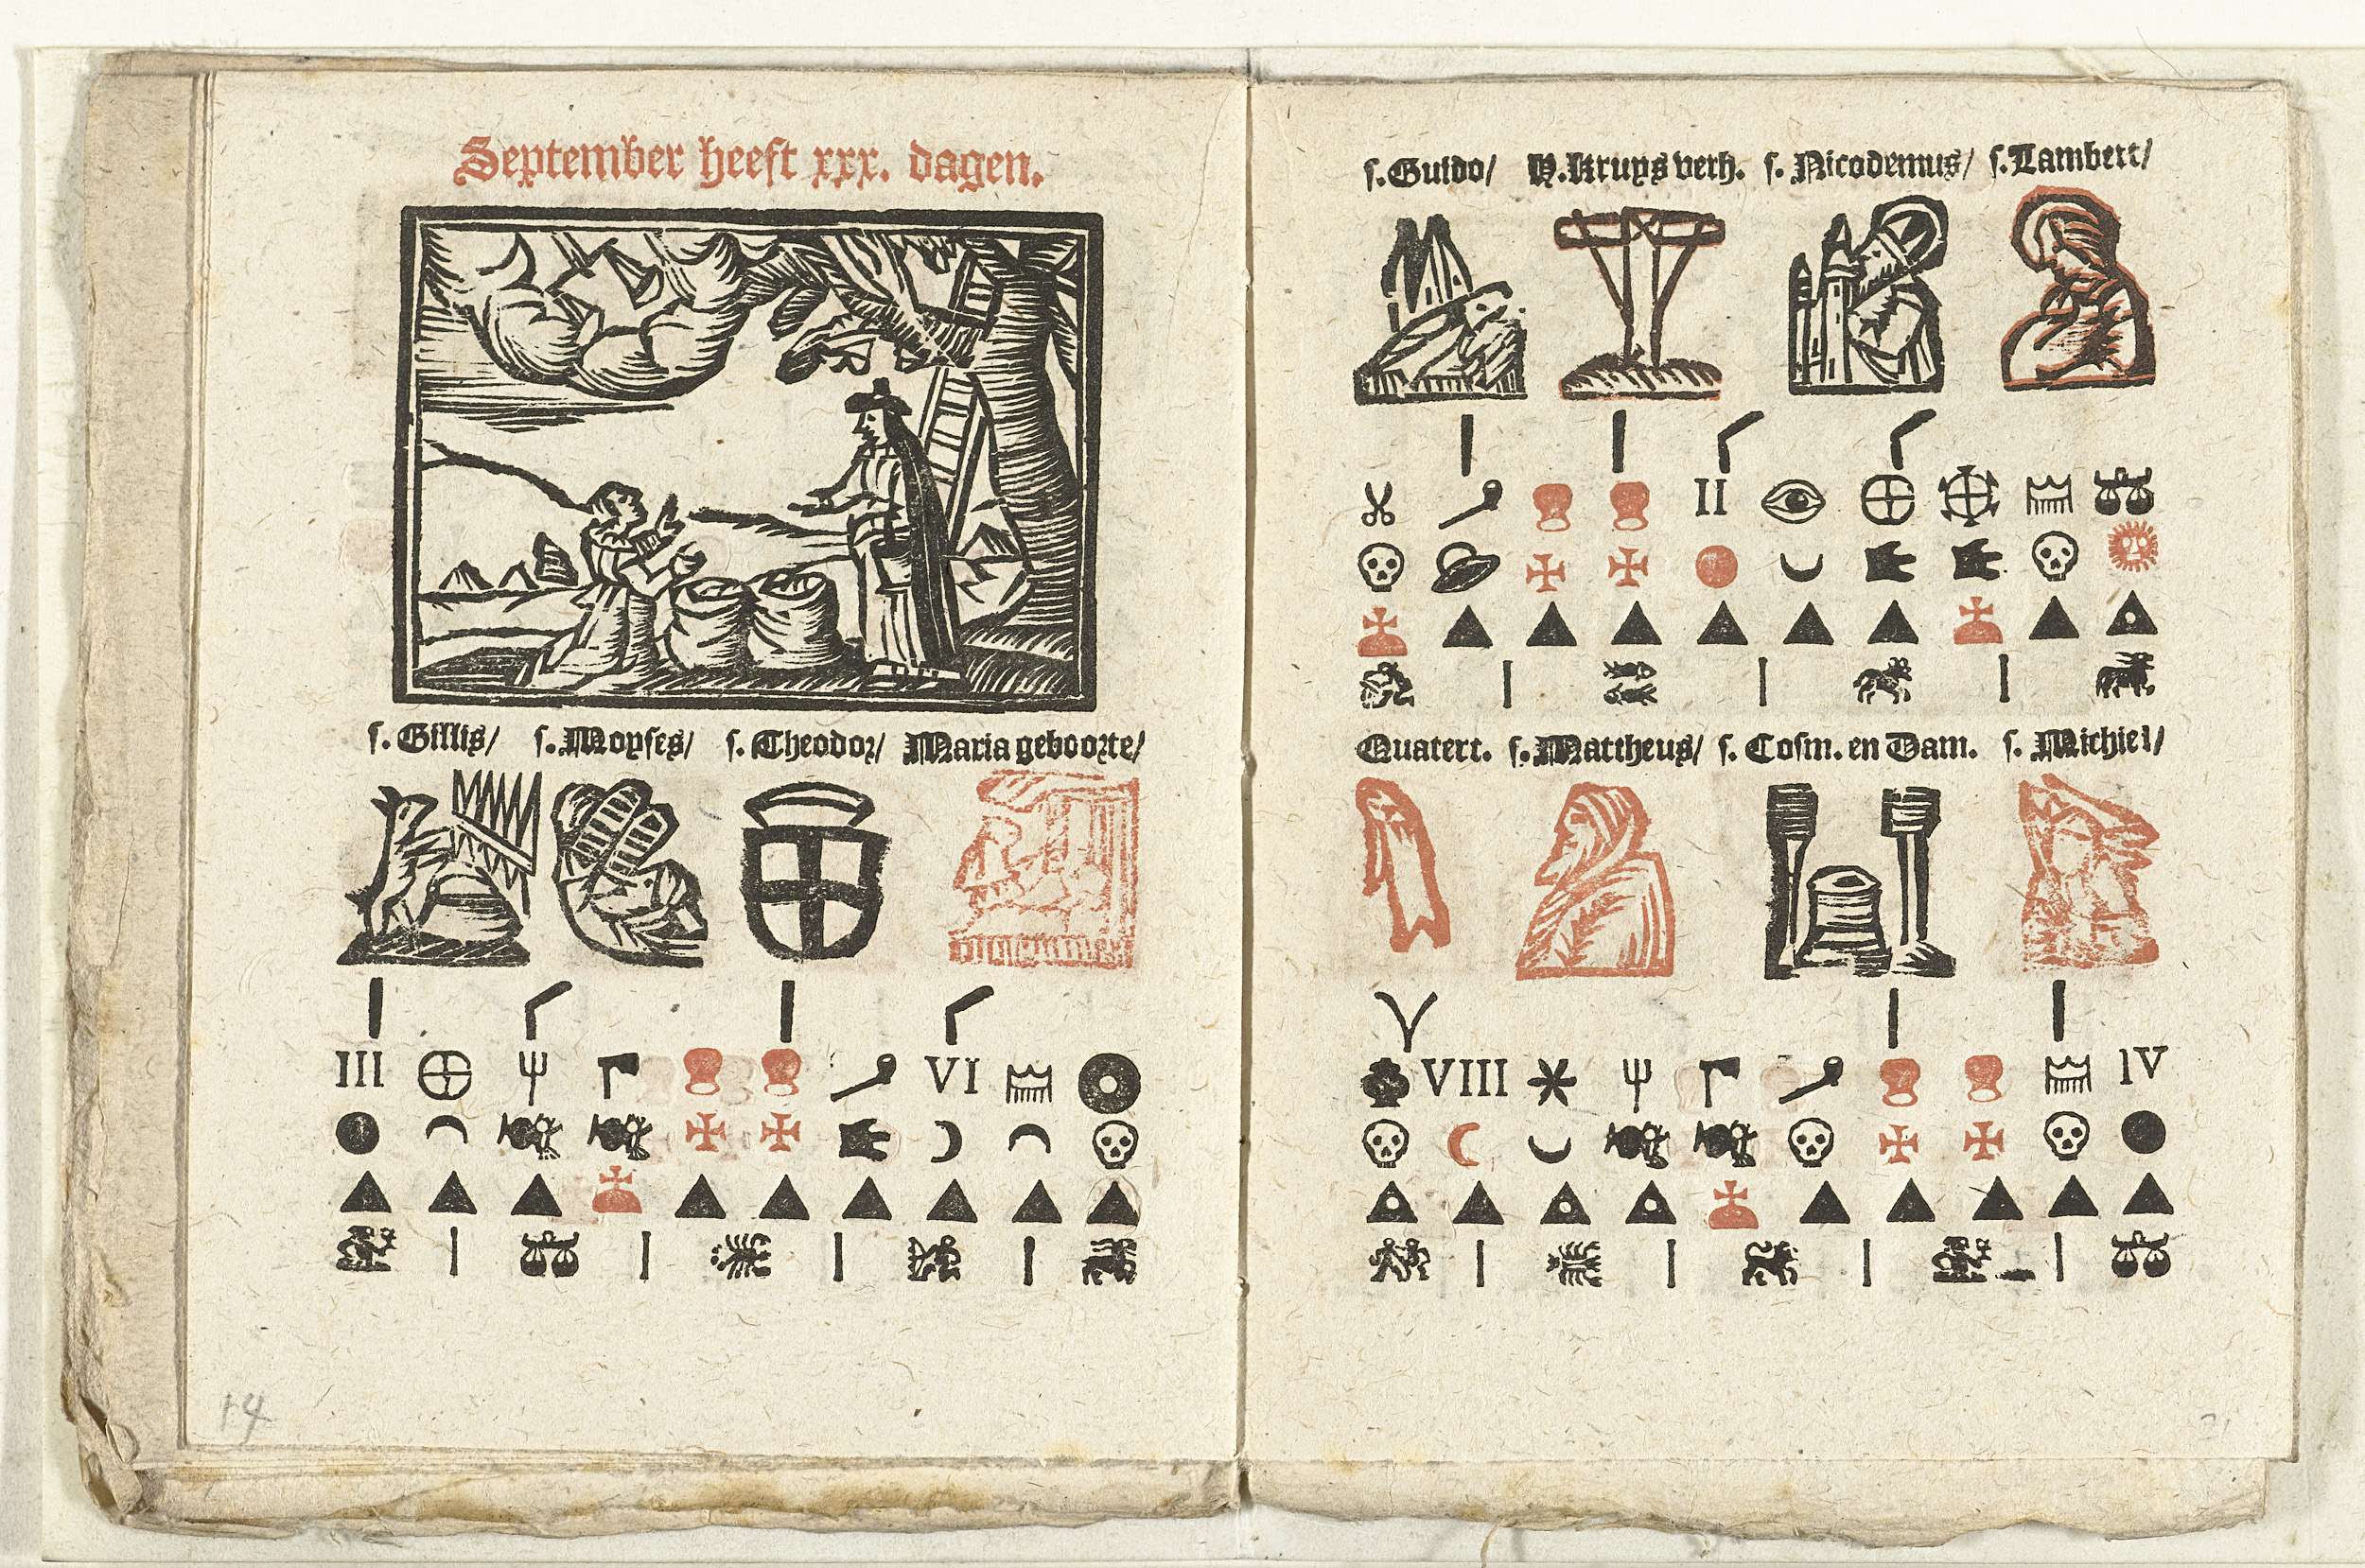 September heeft xxx. dagen.
s. Gillis/ s. Moyses/ s. Theodor/ Maria geboorte/
III VI
14
s. Guido/ H. Kruys verh. s. Nicodemus/ s. Lambert/
II
Quatert. s. Mattheus/ s. Cosm. en Dam. s. Michiel/
VIII IV